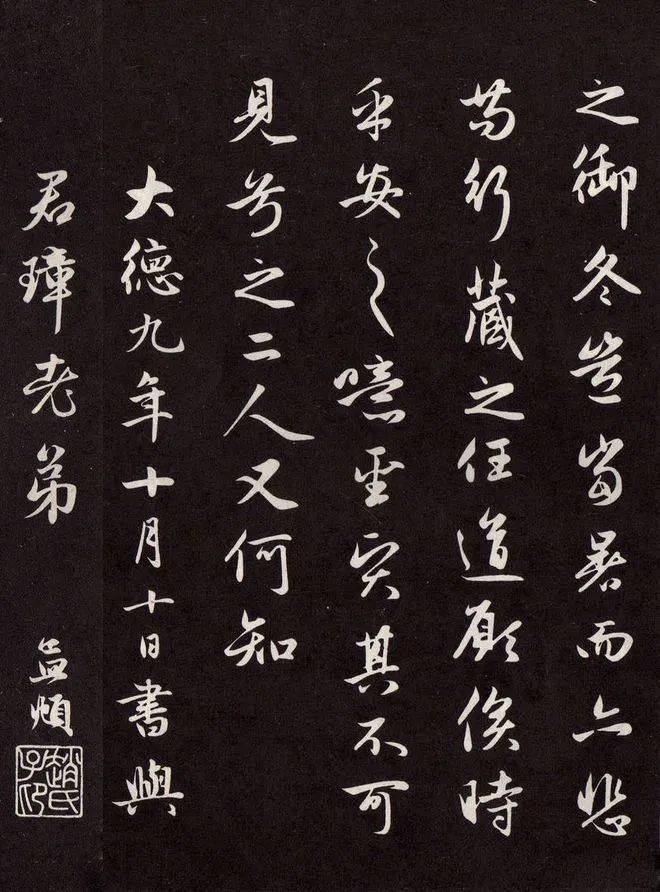 之御冬豈當暑而亦悲
苟行藏之任道顧俟時
乎安之噫聖賢其不可
見兮之二人又何知
大德九年十月十日書與
君璋老弟
孟頫
趙氏子昂